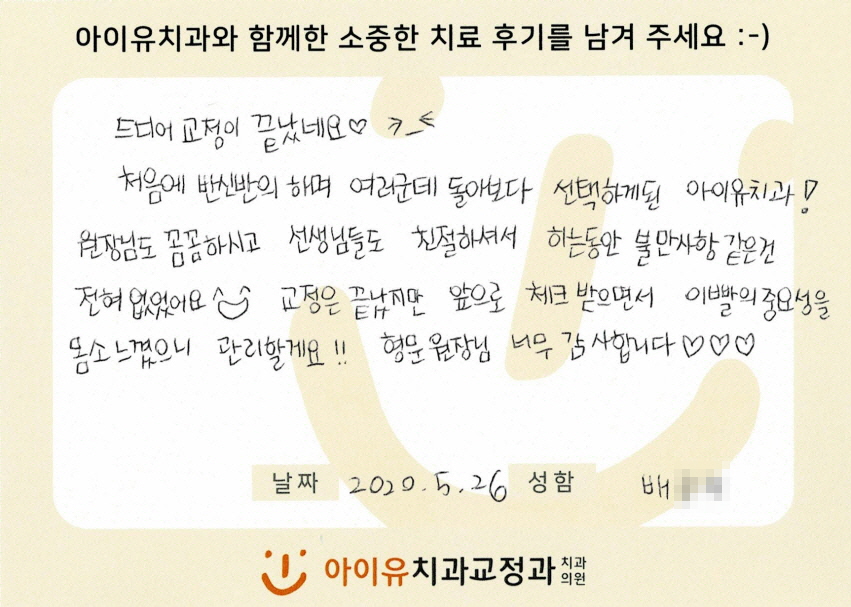 아이유치과와 함께한 소중한 치료 후기를 남겨 주세요 :-)
드디어 교정이 끝났네요♡ >_<
처음에 반신반의 하며 여러군데 돌아보다 선택하게된 아이유치과!
원장님도 꼼꼼하시고 선생님들도 친절하셔서 하는동안 불만사항 같은건
전혀 없었어요 교정은 끝났지만 앞으로 체크 받으면서 이빨의 중요성을
몸소 느꼈으니 관리할게요!! 형문 원장님 너무 감사합니다♡♡♡
날짜 2020.5.26 성함 배
아이유치과교정과 치과의원